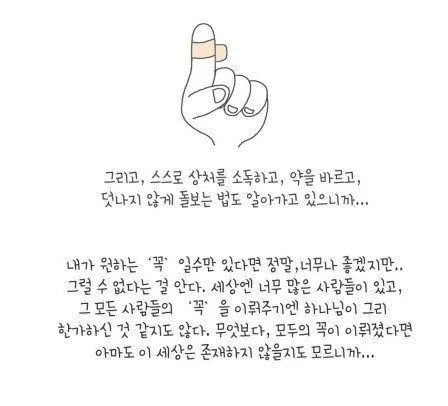 그리고, 스스로 상처를 소독하고, 약을 바르고,
덧나지 않게 돌보는 법도 알아가고 있으니까...
내가 원하는 ‘꼭’ 일수만 있다면 정말,너무나 좋겠지만..
그럴 수 없다는 걸 안다. 세상엔 너무 많은 사람들이 있고,
그 모든 사람들의 ‘꼭’을 이뤄주기엔 하나님이 그리
한가하신 것 같지도 않다. 무엇보다, 모두의 꼭이 이뤄졌다면
아마도 이 세상은 존재하지 않을지도 모르니까...